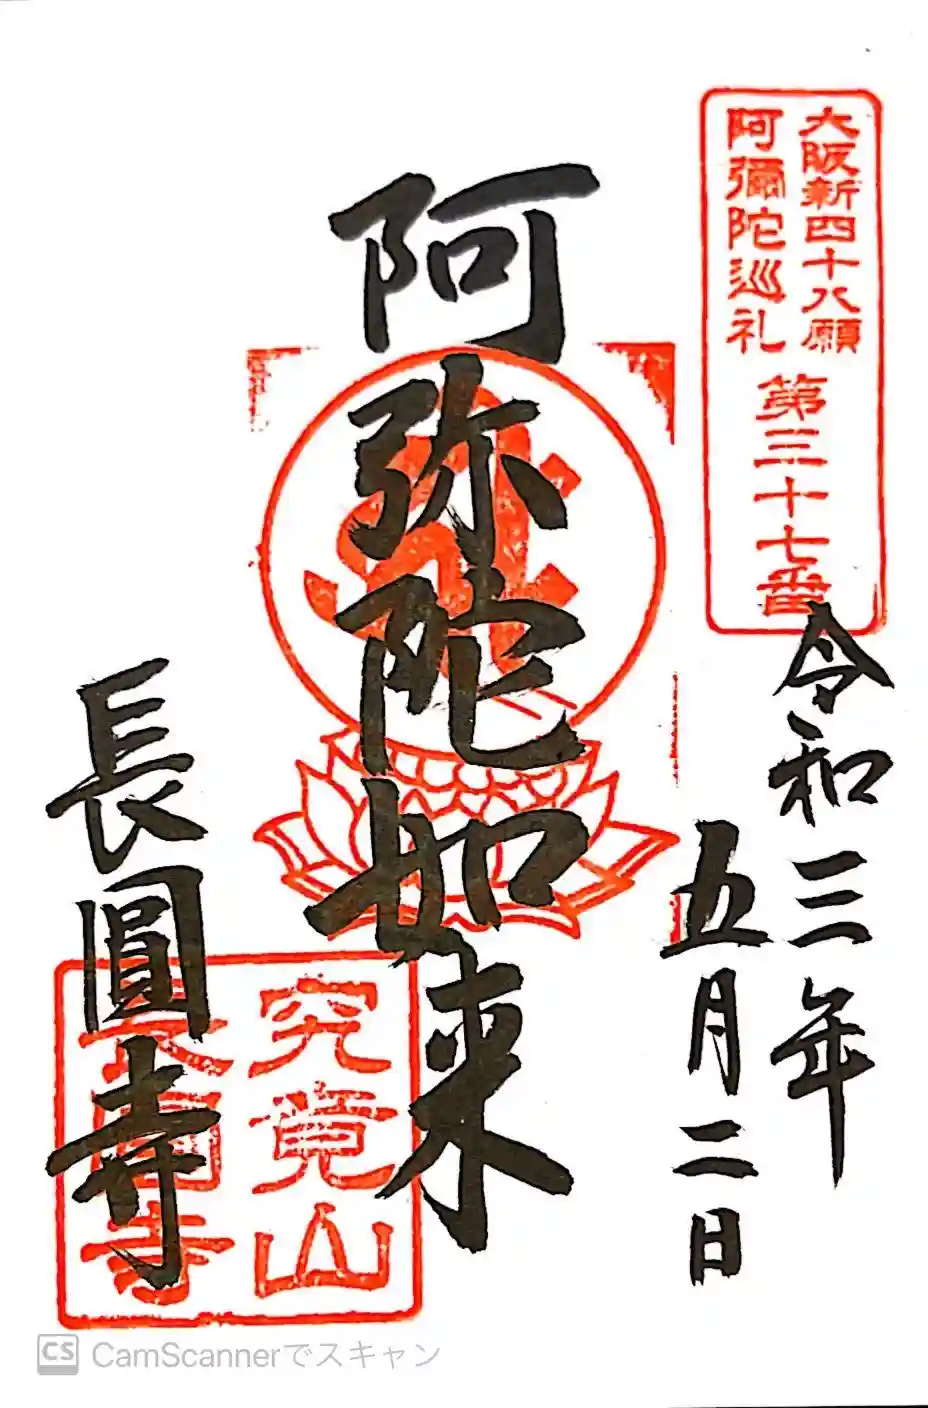 大阪新四十八願
阿彌陀巡礼
第三十七番
令和三年
五月二日
阿弥陀如来
究竟山
長圓寺
長圓寺
CS CamScannerでスキャン